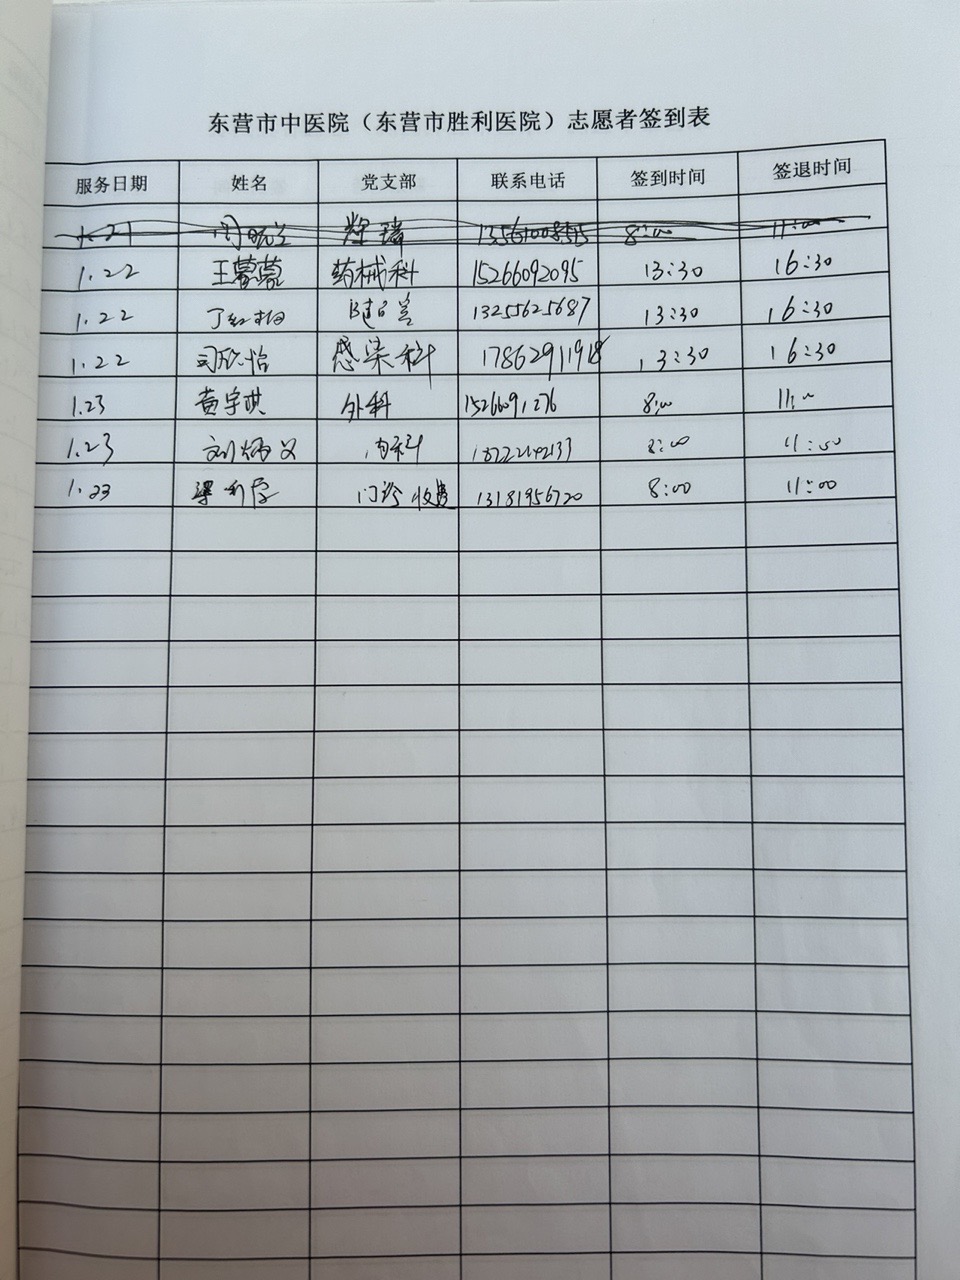 东营市中医院（东营市胜利医院）志愿者签到表
服务日期 姓名 党支部 联系电话 签到时间 签退时间
1.21 8:00 11:00
1.22 王蓉蓉 药械科 15266092095 13:30 16:30
1.22 13255625687 13:30 16:30
1.22 司欣怡 感染科 13:30 16:30
1.23 黄宇琪 外科 15266091276 8:00 11:00
1.23 刘炳义 内科 8:00
1.23 门诊收费 13181956720 8:00 11:00